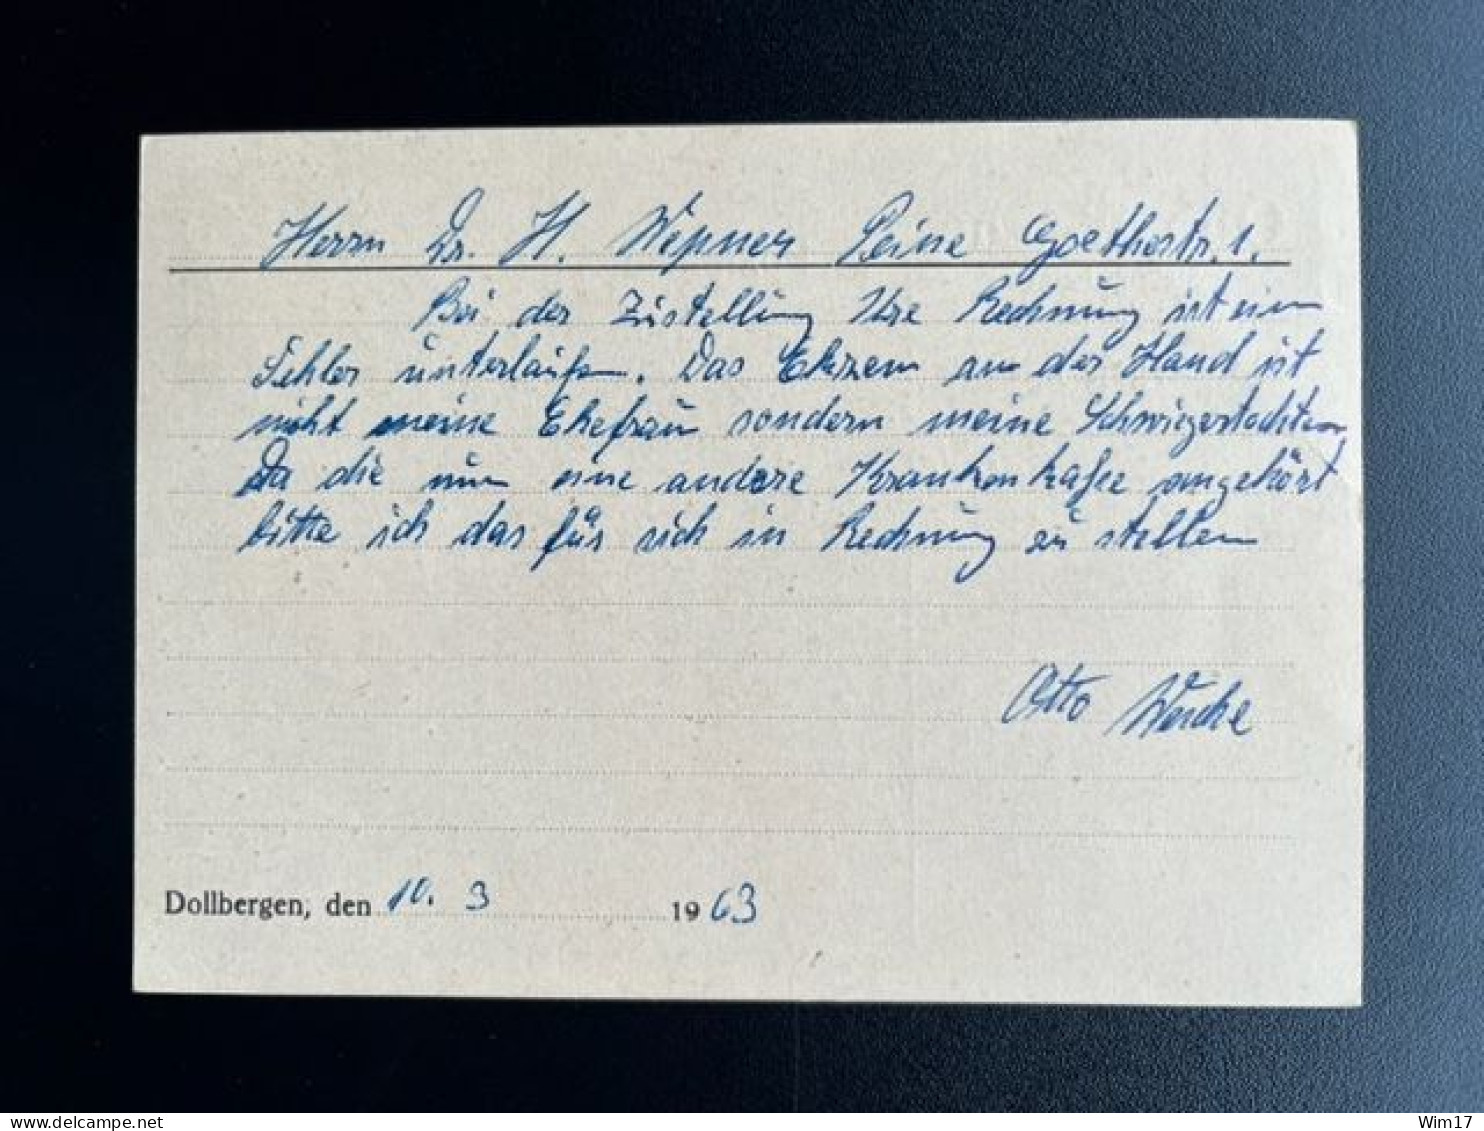 Herrn Dr. H. Wepner Peine Goethestr. 1.
Bei der Zustellung Ihre Rechnung ist ein
Fehler unterlaufen. Das Ekzem an der Hand ist
nicht meine Ehefrau sondern meine Schwiegertochter
Da die nun eine andere Krankenkasse angehört
bitte ich das für sich in Rechnung zu stellen
Otto
Dollbergen, den 10. 3 1963
Wim17